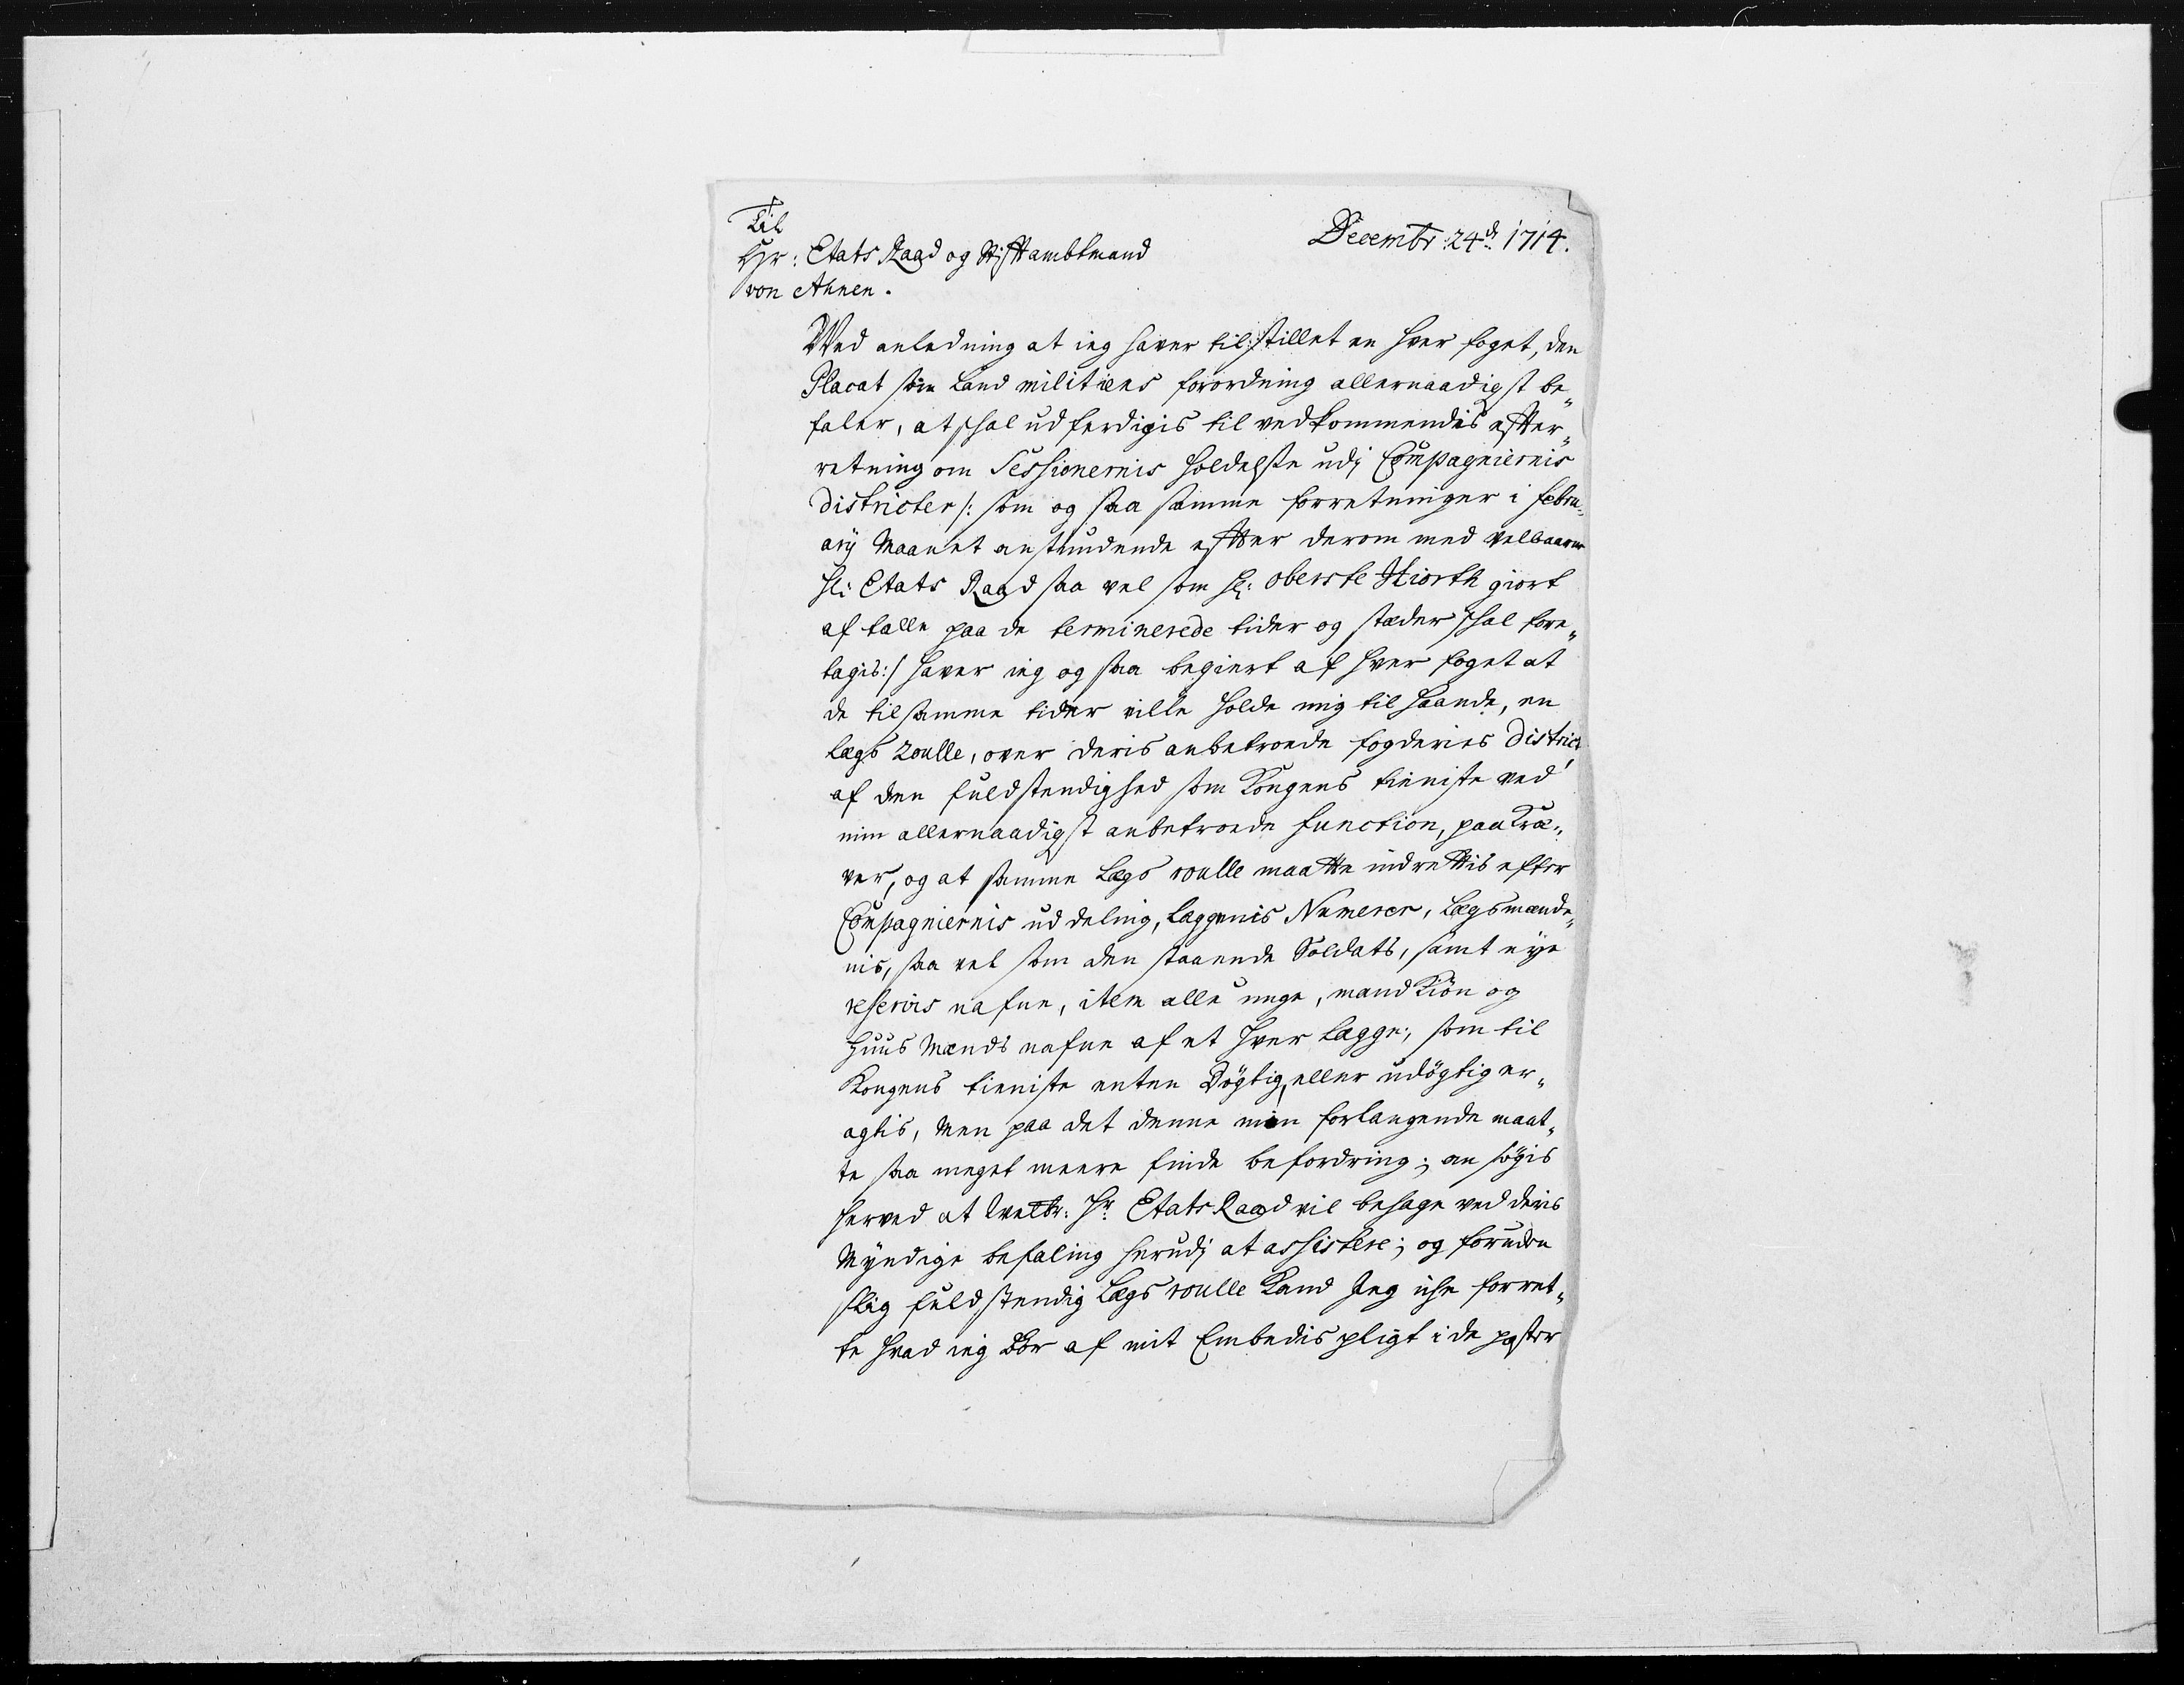 Til
Hr: Etats Raad og Stiftambtmand
Decembr: 24de 1714.
von Ahnen.
Ved anledning at ieg haver tilstillet en hver foget, den
Placat som Land militiens forordning allernaadigst be„
faler, at skal udferdigis til vedkommendis efter„
retning om Sessionernis holdelse udj Compagniernis
districter /: som og saa samme forretninger i febru„
arij Maanet anstundende efter derom med Velbaarne
Hr: Etats Raad saa vel som Hr: oberste Hiorth giort
aftalle paa de terminerede tider og stæder skal fore„
tagis:/ haver ieg og saa begiert af hver foget at
de til samme tider ville holde mig til haande, en
Legs roulle, over deris anbetroede fogderies District
af den fuldstendighed som Kongens tieniste ved
min allernaadigst anbetroede function, paakræ„
ver, og at samme Legs roulle maatte indrettis efter
Compagniernis uddeling, læggenis Numerer, Lægsmænde„
nis, saa vel som den staaende Soldats, samt nye
reservis nafne, item alle unge, mandkiøn og
Huus Mænds nafne af et hver Lægge, som til
Kongens tieniste enten Døgtig eller udøgtig er„
agtis, Men paa det denne min forlangende maat„
te saa meget meere finde befordring; ansøgis
herved at Velbr: Hr. Etats Raad vil behage ved deris
Myndige befaling herudj at assistere; og foruden
slig fuldstendig Legs roulle Kand Jeg icke forret„
te hvad ieg bør af mit Embedis pligt i de poster